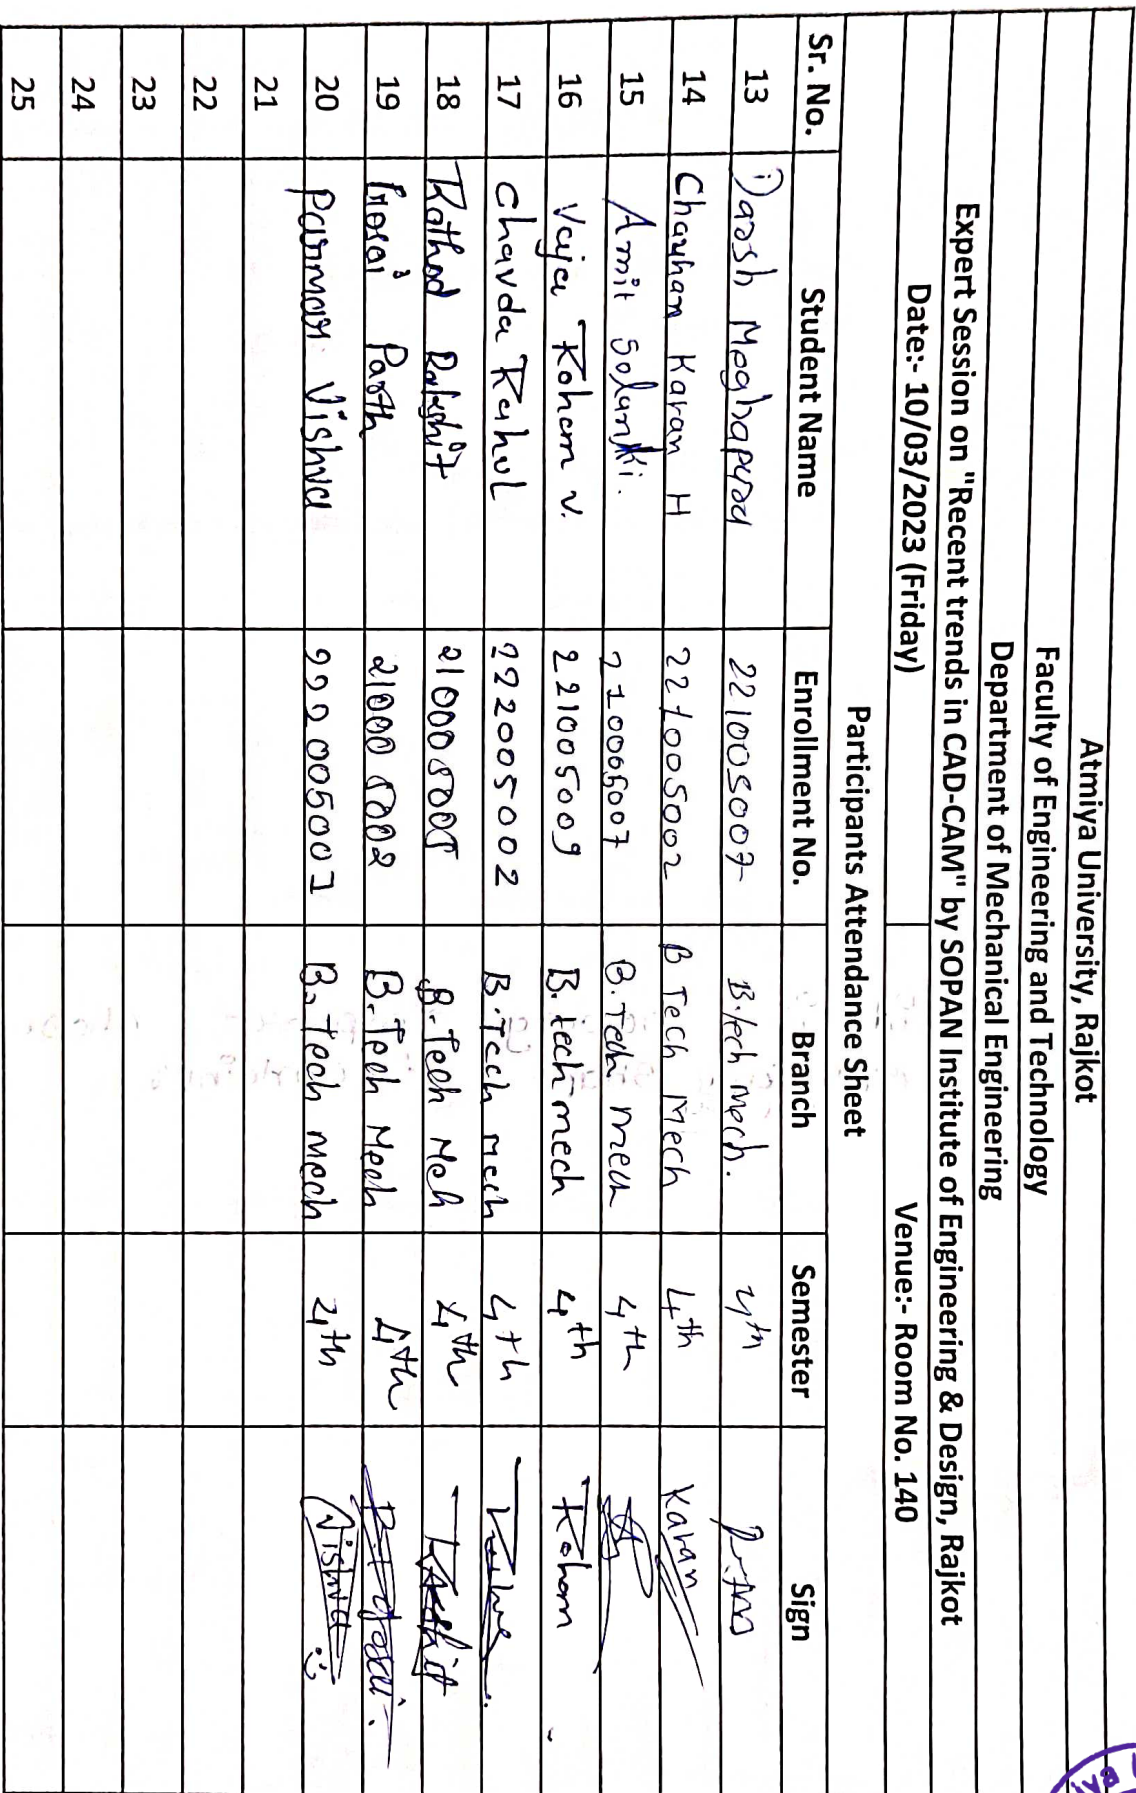 Atmiya University, Rajkot
Faculty of Engineering and Technology
Department of Mechanical Engineering
Expert Session on "Recent trends in CAD-CAM" by SOPAN Institute of Engineering & Design, Rajkot
Date:- 10/03/2023 (Friday) Venue:- Room No. 140
Participants Attendance Sheet
Sr. No. Student Name Enrollment No. Branch Semester Sign
13 Darsh Meghapara 221005007 B.tech Mech. 4th
14 Chauhan Karan H 221005002 B Tech Mech 4th Karan
15 Amit Solanki. 210005007 B.Tech Mech 4th
16 Vaja Roham v. 221005009 B.tech mech 4th Roham
17 Chavda Rahul 222005002 B.Tech mech 4th
18 Rathod Rakshit 210005005 B.Tech Meh 4th Rakshit
19 Gosai Parth 210005002 B.Tech Mech 4th P.I.Gosai.
20 Parmar Vishva 222005001 B.Tech mech 4th Vishva
21
22
23
24
25